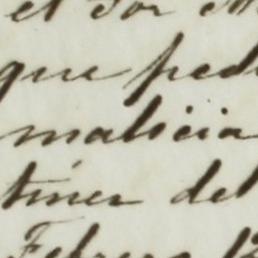 el Sor
que pedi
malicia
tiner del
Febrero 12